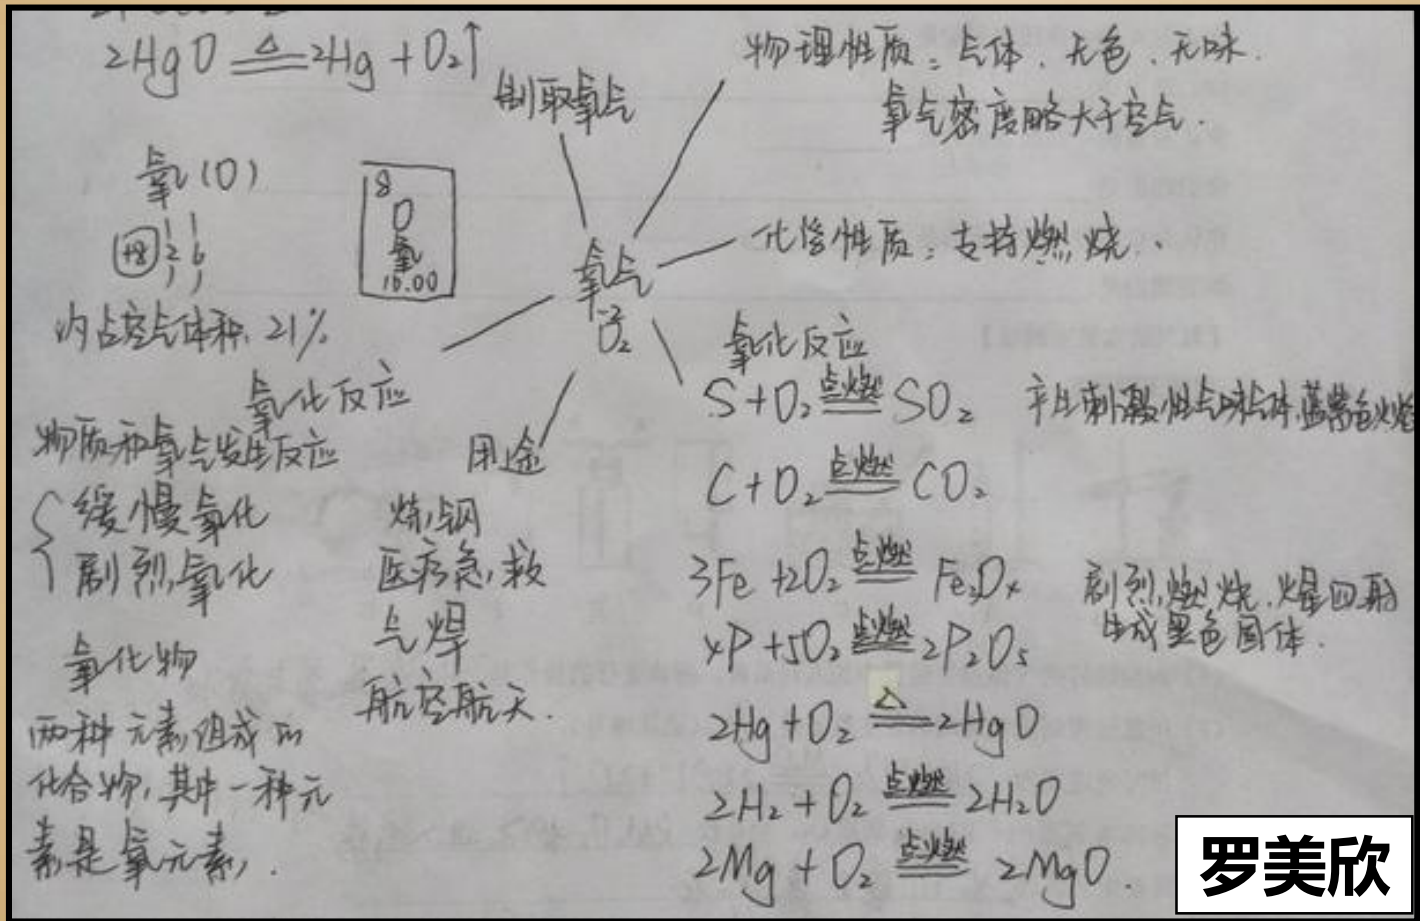 2HgO ≜ 2Hg + O₂↑
制取氧气
物理性质：气体、无色、无味.
氧气密度略大于空气.
氧(O)
8
O
氧
16.00
+8 2 6
约占空气体积 21%
氧气
O₂
化学性质：支持燃烧.
氧化反应
物质和氧气发生反应
缓慢氧化
剧烈氧化
氧化物
两种元素组成的
化合物,其中一种元
素是氧元素.
用途
炼钢
医疗急救
气焊
航空航天.
氧化反应
S+O₂ 点燃 SO₂ 产生刺激性气味气体,蓝紫色火焰
C+O₂ 点燃 CO₂
3Fe+2O₂ 点燃 Fe₃O₄ 剧烈燃烧.火星四射
生成黑色固体.
4P+5O₂ 点燃 2P₂O₅
2Hg+O₂ ≜ 2HgO
2H₂+O₂ 点燃 2H₂O
2Mg+O₂ 点燃 2MgO.
罗美欣